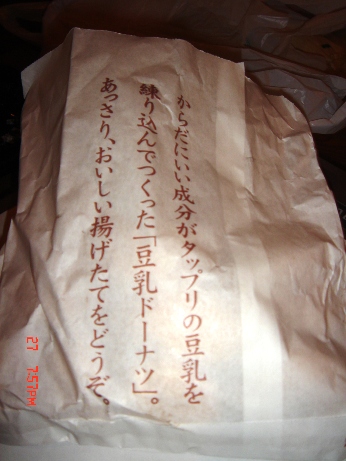 からだにいい成分がタップリの豆乳を
練り込んでつくった「豆乳ドーナツ」。
あっさり、おいしい揚げたてをどうぞ。
27 7:57PM